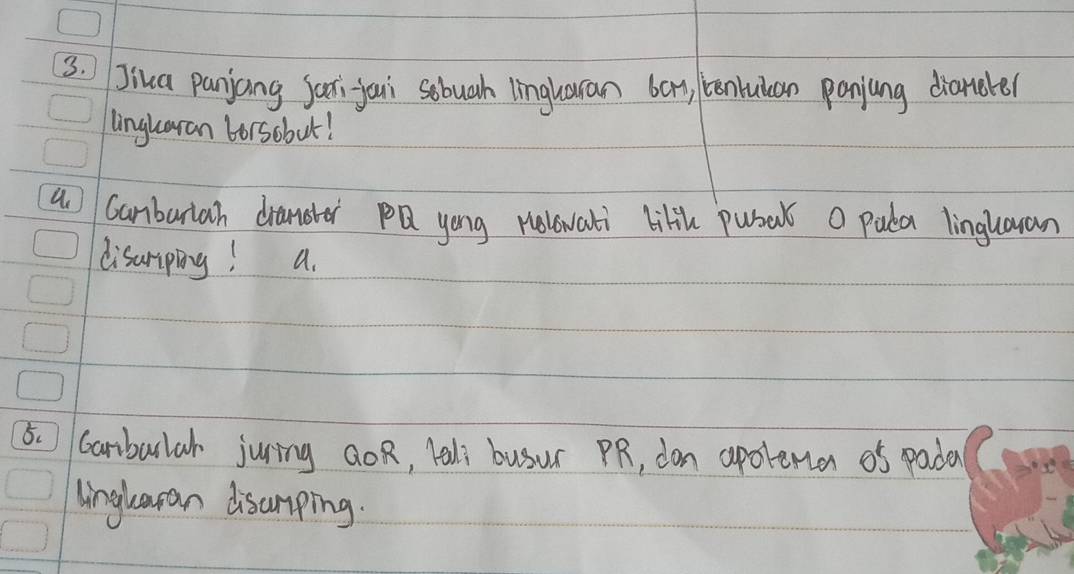 3. Jika panjang jari-jari sebuah lingkaran 6cm, tentukan panjang diameter
lingkaran tersebut!
4. Gambarlah diameter PQ yang melewati titik pusat O pada lingkaran
disamping! a.
5. Gambarlah juring QOR, tali busur PR, dan apotema OS pada
lingkaran disamping.